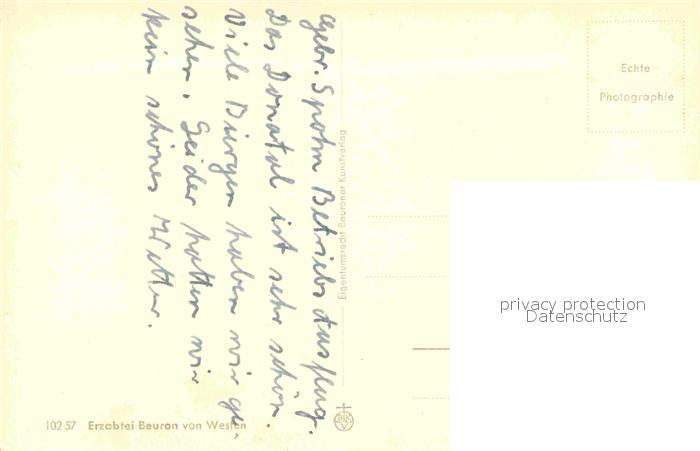 Gebr. Spohn Betriebs Ausflug.
Das Donatal ist sehr schön.
Viele Burgen haben wir ge-
sehen. Leider hatten wir
kein schönes Wetter.
Eigentumsrecht Beuroner Kunstverlag
Echte
Photographie
privacy protection
Datenschutz
10257 Erzabtei Beuron von Westen